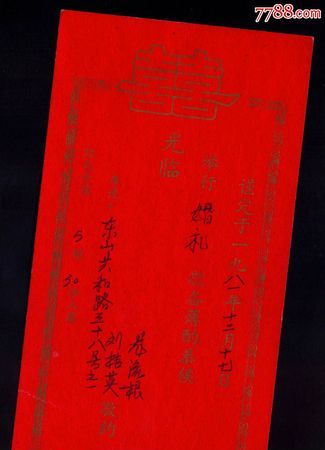 7788.com
囍
谨定于一九八一年十二月十七日
举行 婚礼 敬备薄酌恭候
光临
刘振英 敬约
席设于 东山共和路五十八号之一
5 时 30